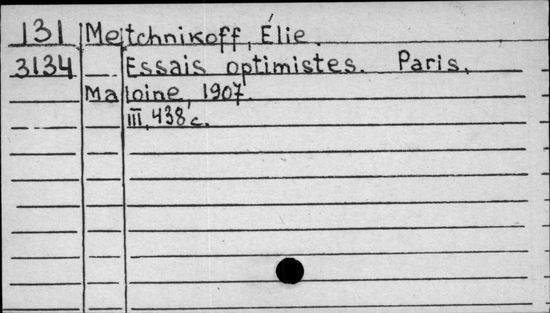 131 Metchnikoff, Élie.
3134 Essais optimistes. Paris,
Maloine, 1907.
III, 438 c.